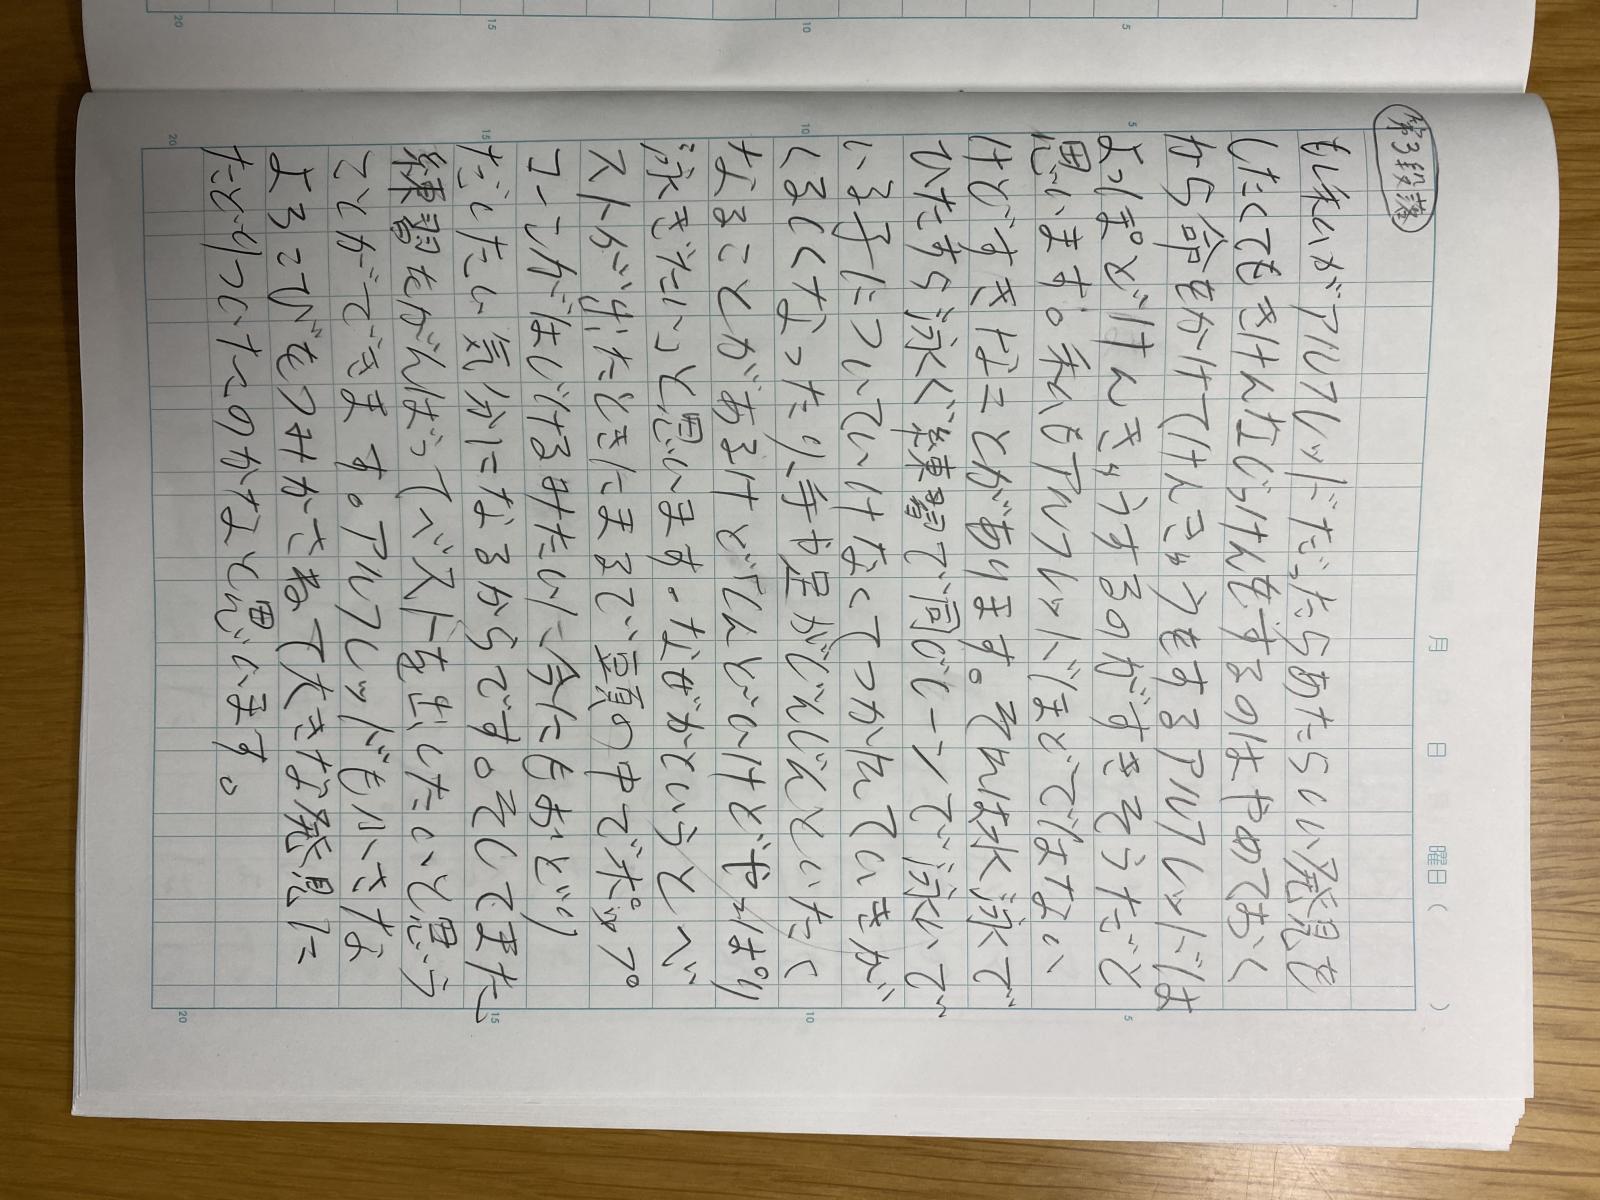 第3段落
もし私がアルフレッドだったらあたらしい発見を
したくてもきけんなじっけんをするのはやめておく
から命をかけてけんきゅうをするアルフレッドは
よっぽどけんきゅうするのがすきそうだと
思います。私もアルフレッドほどではない
けどすきなことがあります。それは水泳で
ひたすら泳ぐ練習で同じレーンで泳いで
いる子についていけなくてつかれていきが
くるしくなったり、手や足がじんじんといたく
なることがあるけどしんどいけどやっぱり
泳ぎたいっと思います。なぜかというとベ
ストが出たときたまるで頭の中でポップ
コーンがはじけるみたいに、今にもおどり
だしたい気分になるからです。そしてまた、
練習をがんばってベストを出したいと思う
ことができます。アルフレッドも小さな
よろこびをつみかさねて大きな発見に
たどりついたのかなと思います。
月 日 曜日( )
5
10
15
20
5
10
15
20
5
10
15
20